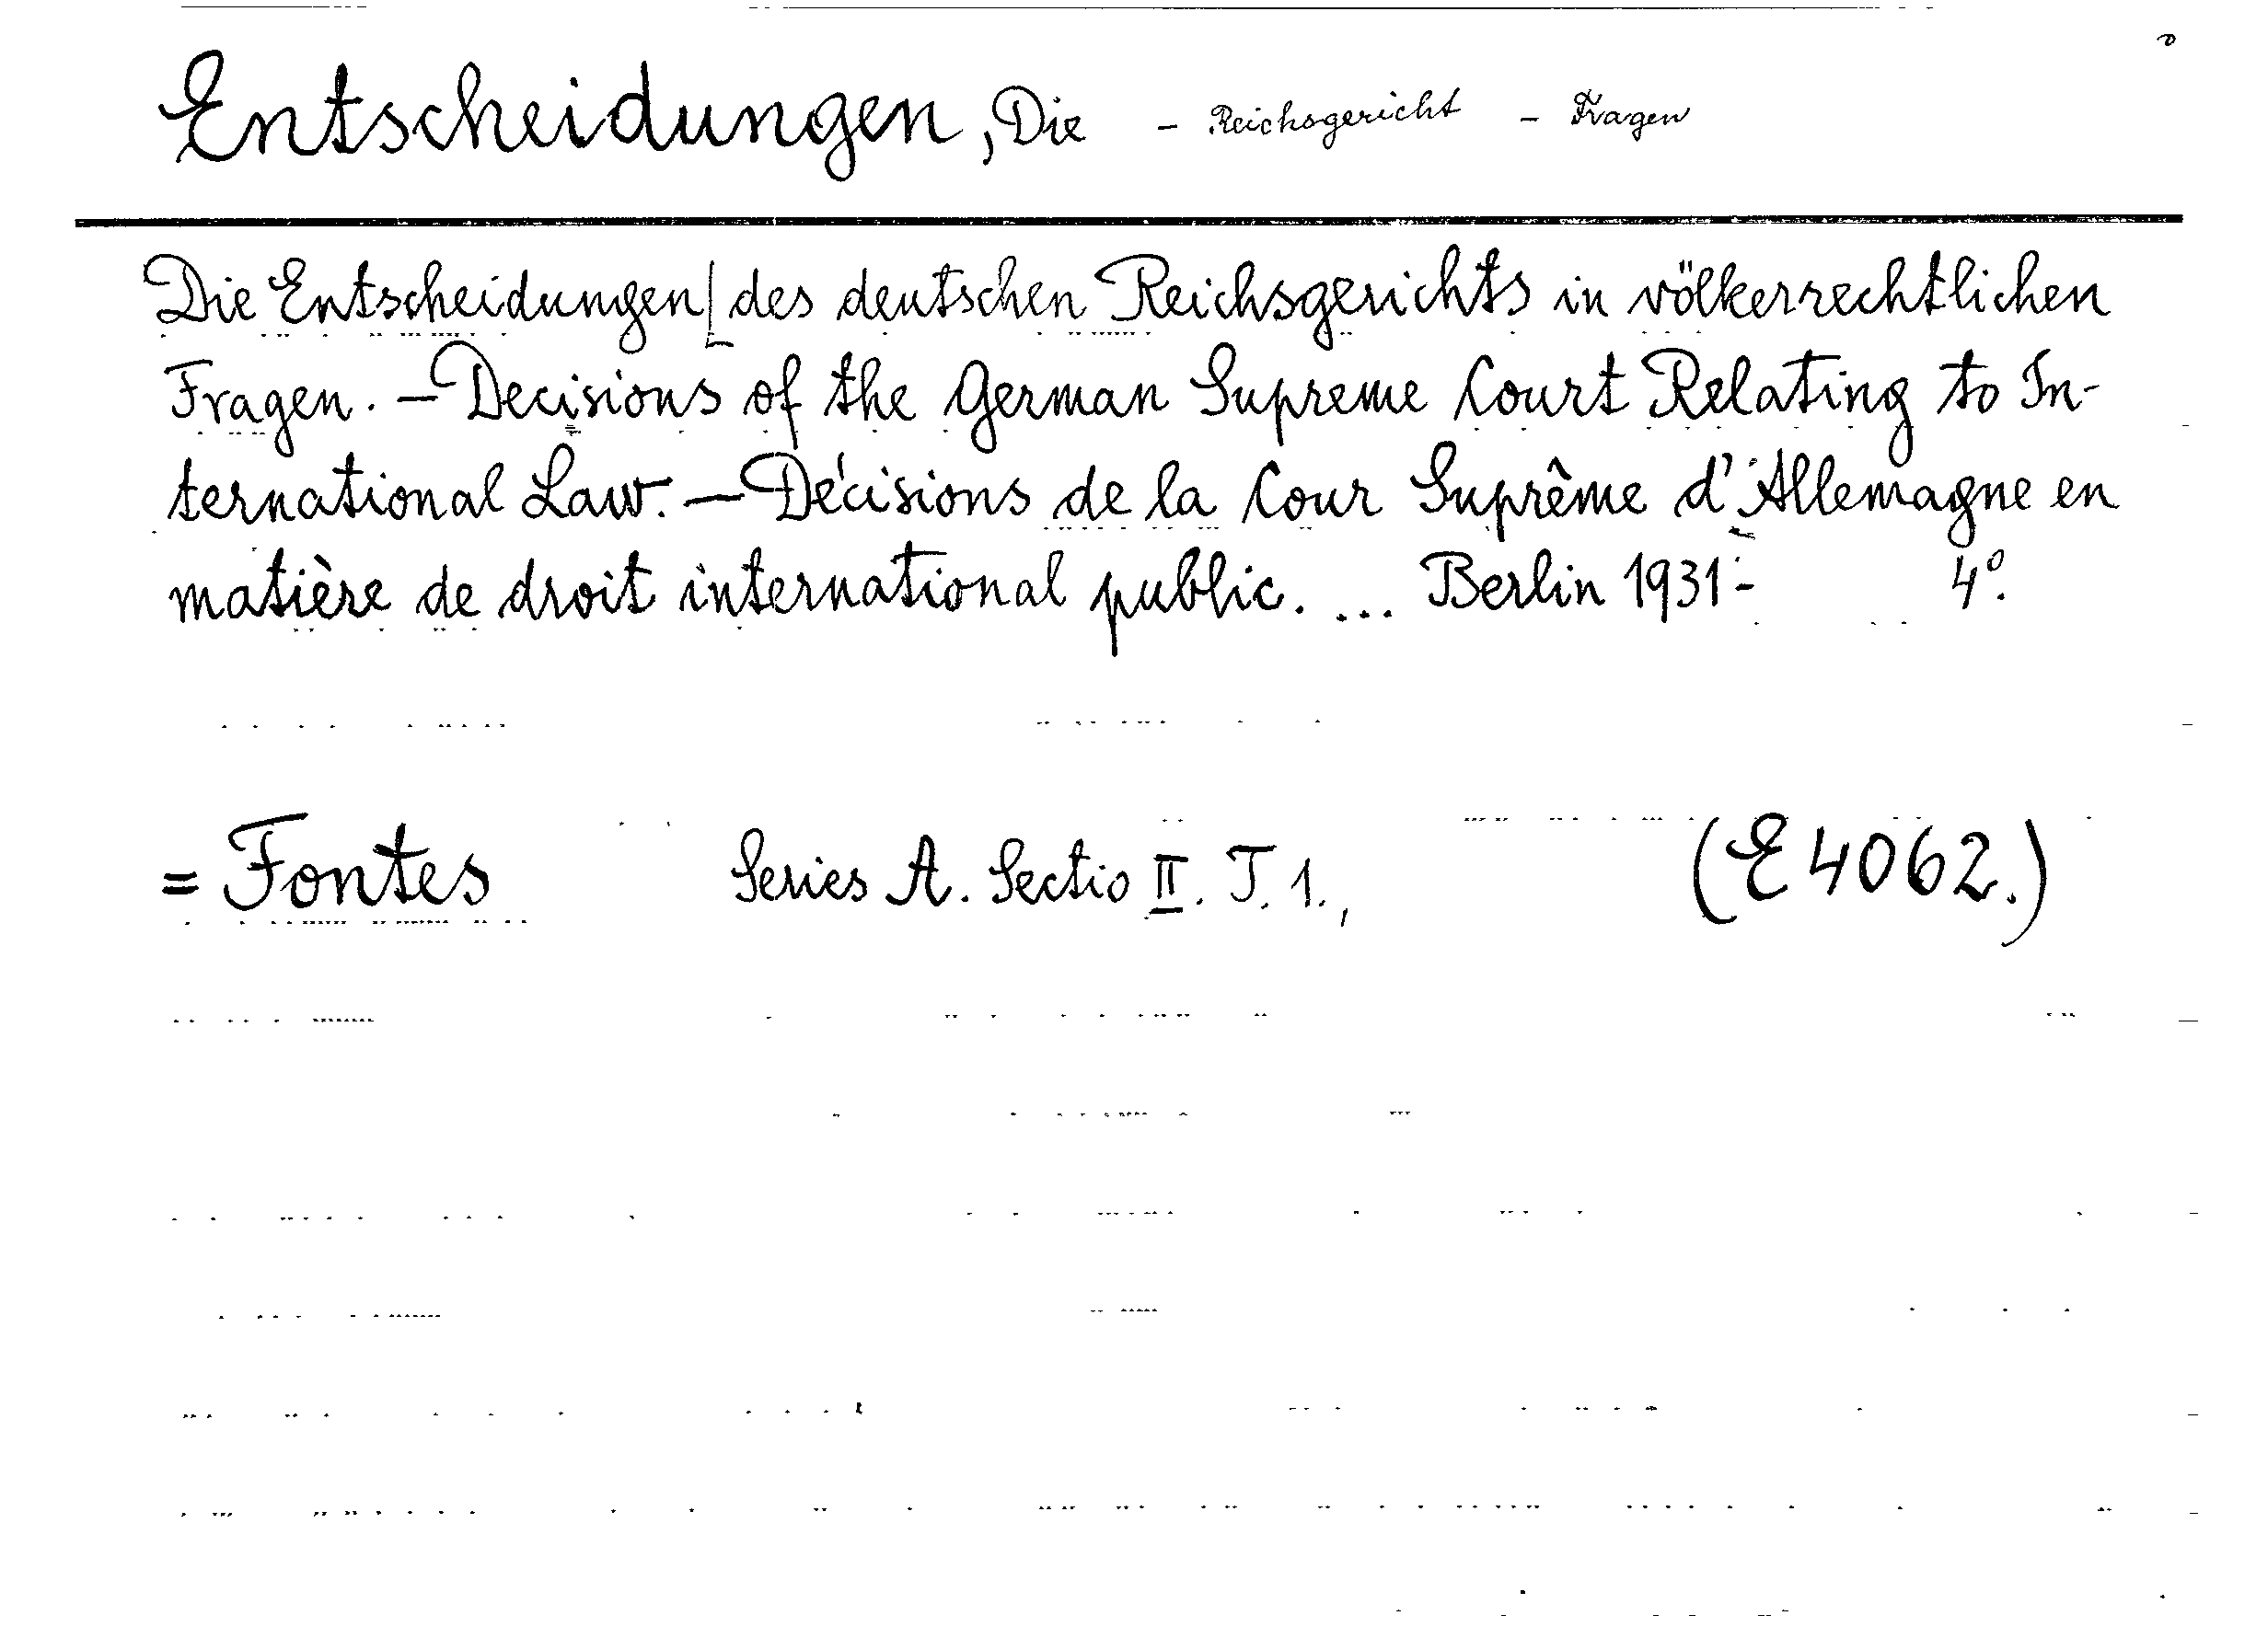 Entscheidungen, Die - Reichsgericht - Fragen
Die Entscheidungen des deutschen Reichsgerichts in völkerrechtlichen
Fragen. — Decisions of the German Supreme Court Relating to In-
ternational Law. — Décisions de la Cour Suprême d'Allemagne en
matière de droit international public. ... Berlin 1931- 4°.
= Fontes Series A. Sectio II. T. 1., (E 4062.)